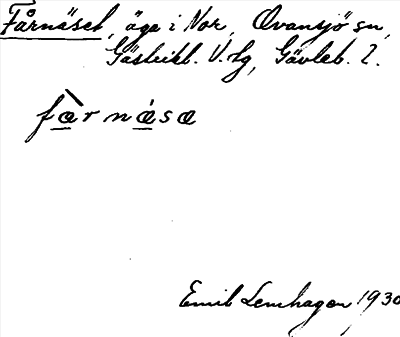 Fårnäset, äga i Nor, Ovansjö sn,
Gästrikl. V. hg, Gävleb. l.
fὰrnǽsæ
Emil Lenhagen 1930